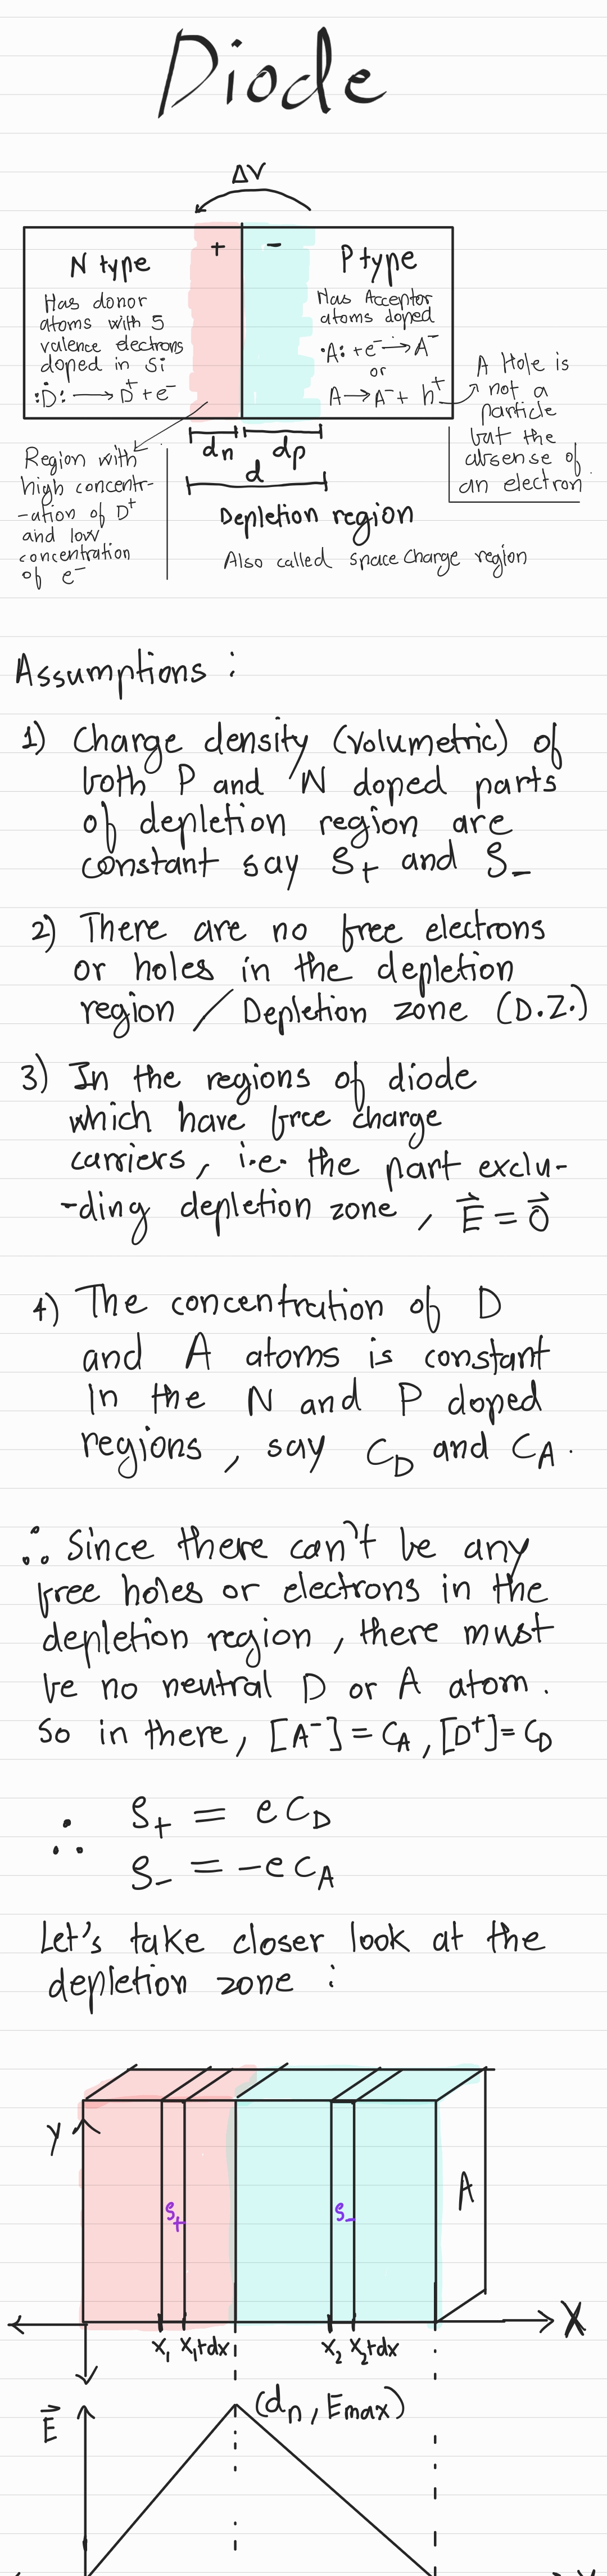 Diode
ΔV
+
-
N type
Has donor
atoms with 5
valence electrons
doped in Si
:Ḋ: → D⁺ + e⁻
P type
Has Acceptor
atoms doped
·A: + e⁻ → A⁻
or
A → A⁻ + h⁺
A Hole is
not a
particle
but the
absense of
an electron
dn
dp
d
Region with
high concentr-
-ation of D⁺
and low
concentration
of e⁻
Depletion region
Also called space charge region
Assumptions :
1) Charge density (volumetric) of
both P and N doped parts
of depletion region are
constant say ρ₊ and ρ₋
2) There are no free electrons
or holes in the depletion
region / Depletion zone (D.Z.)
3) In the regions of diode
which have free charge
carriers, i.e. the part exclu-
-ding depletion zone, E⃗ = 0⃗
4) The concentration of D
and A atoms is constant
In the N and P doped
regions, say C_D and C_A.
∴ Since there can't be any
free holes or electrons in the
depletion region, there must
be no neutral D or A atom.
So in there, [A⁻] = C_A, [D⁺] = C_D
∴ ρ₊ = eC_D
ρ₋ = -eC_A
Let's take closer look at the
depletion zone :
y
ρ₊
ρ₋
A
X
x₁
x₁+dx
x₂
x₂+dx
E⃗
(dn, Emax)